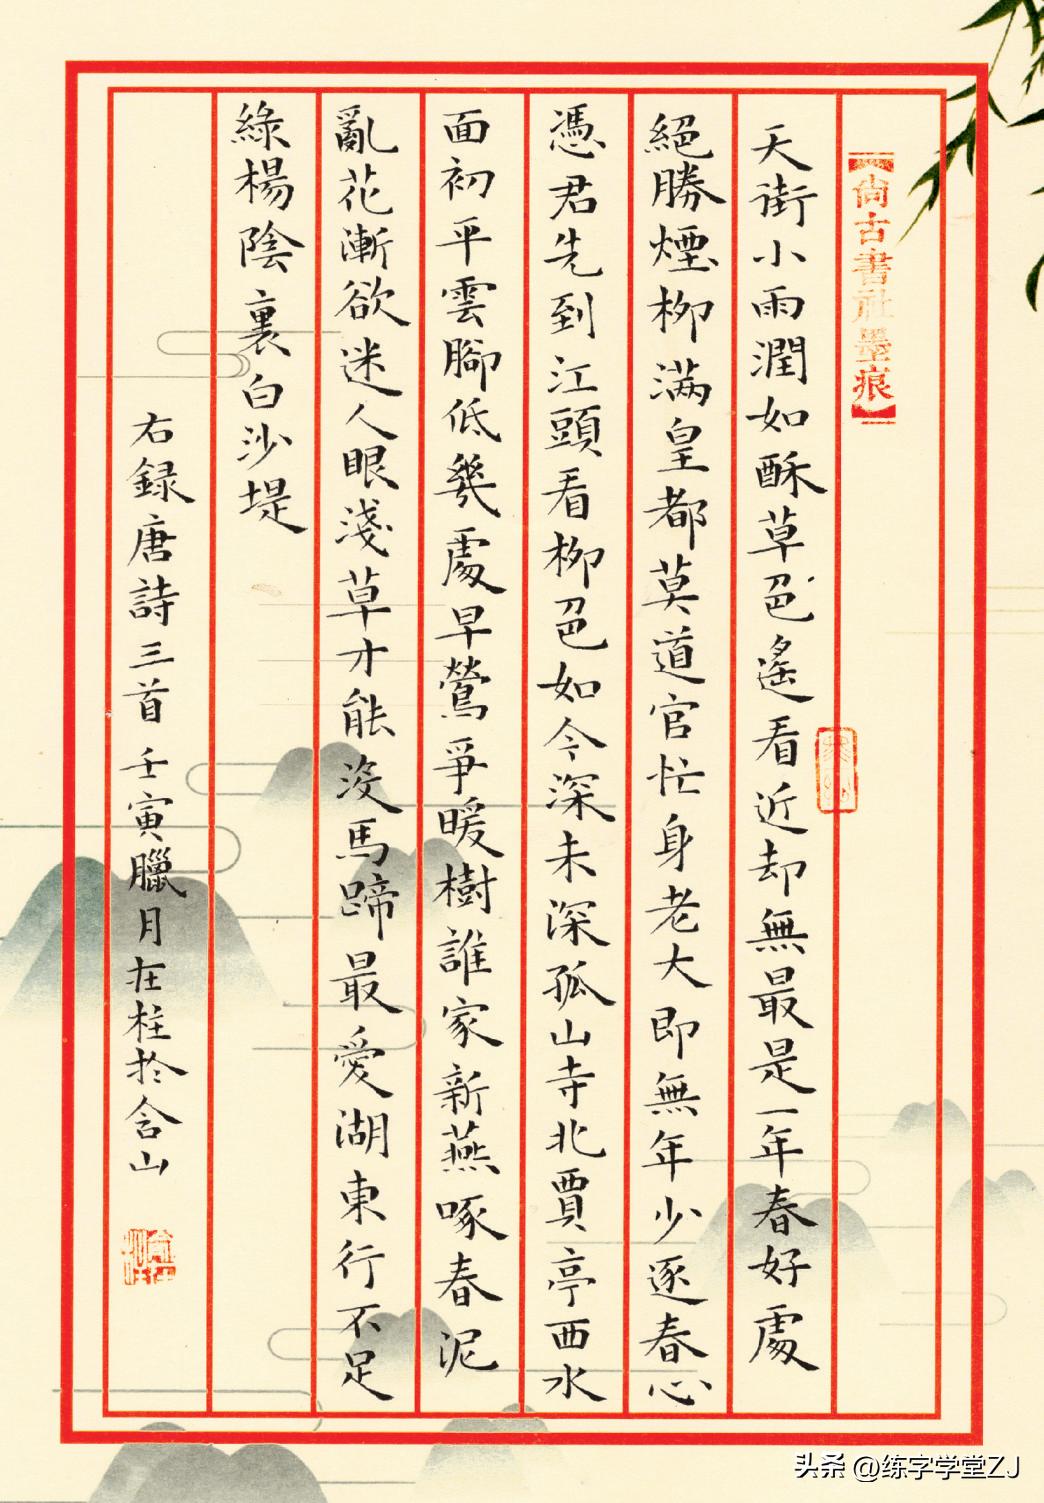 【尚古書社墨痕】
天街小雨潤如酥草色遙看近却無最是一年春好處
絕勝煙柳滿皇都莫道官忙身老大即無年少逐春心
憑君先到江頭看柳色如今深未深孤山寺北賈亭西水
面初平雲腳低幾處早鶯爭暖樹誰家新燕啄春泥
亂花漸欲迷人眼淺草才能沒馬蹄最愛湖東行不足
綠楊陰裏白沙堤
右録唐詩三首壬寅臘月在柱於含山
头条 @练字学堂ZJ